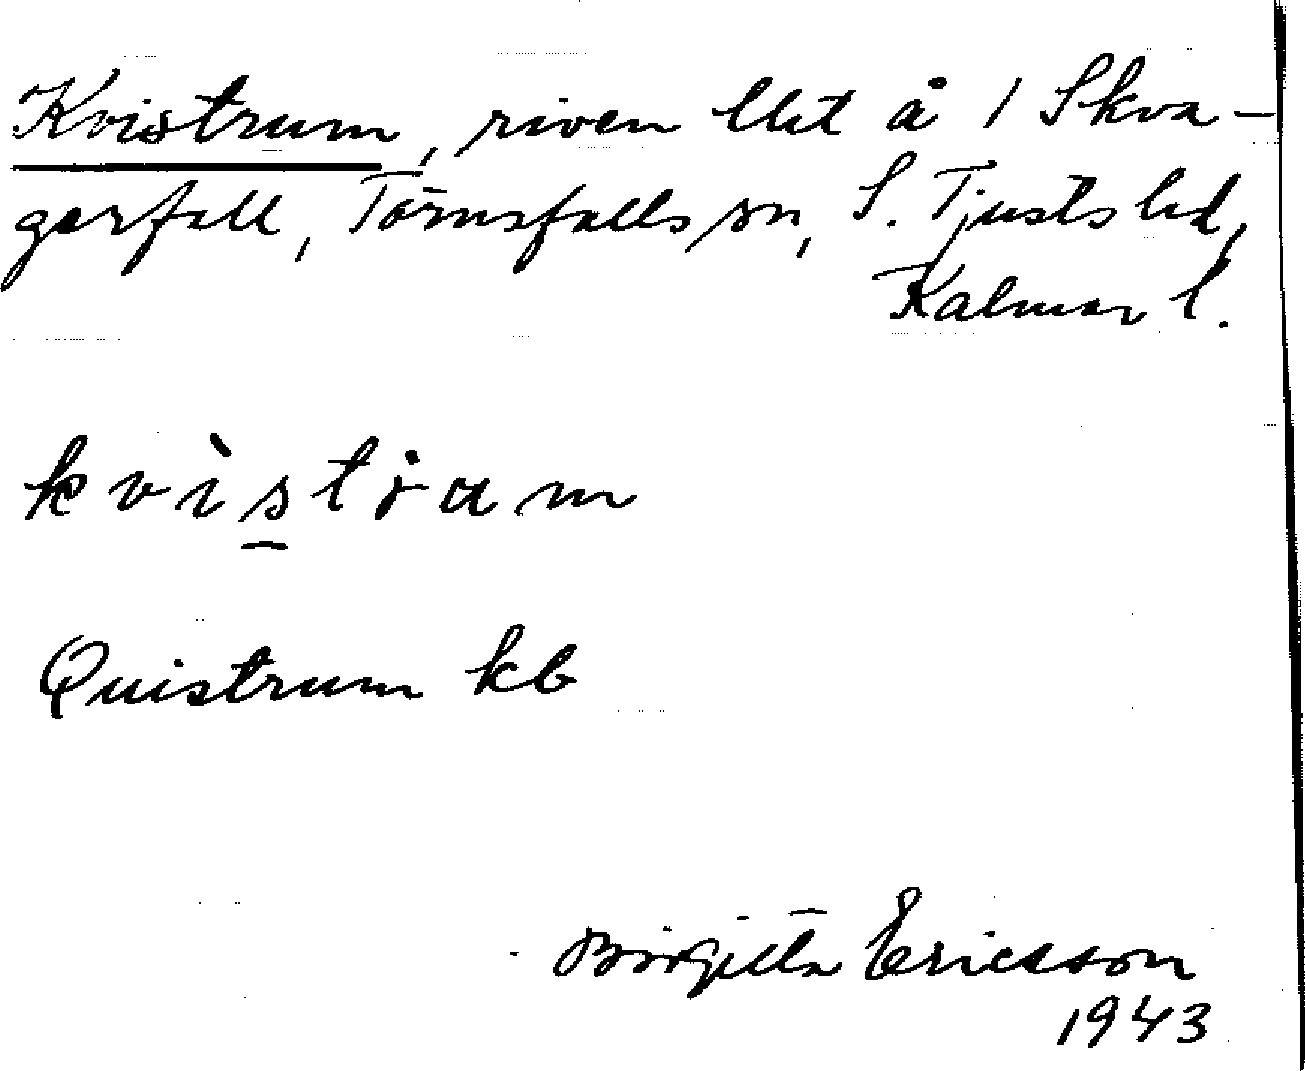 Kvistrum, riven lht å 1 Skva-
garfall, Törnsfalls sn, S. Tjusts hd,
Kalmar l.
kvìstram
Quistrum kb
Birgitta Ericsson
1943